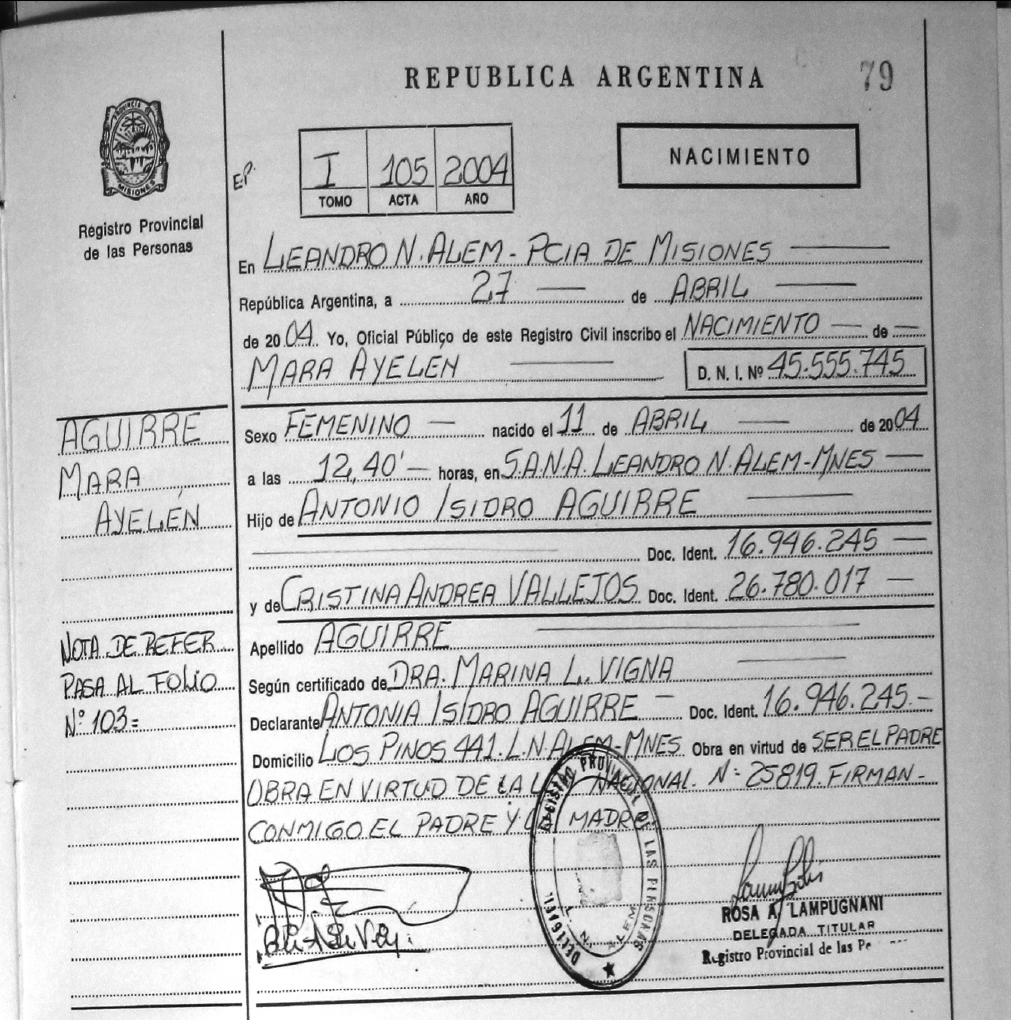 REPUBLICA ARGENTINA 79
PROVINCIA DE MISIONES
Registro Provincial
de las Personas
E.P.
I 105 2004
TOMO ACTA AÑO
NACIMIENTO
En LEANDRO N. ALEM - PCIA DE MISIONES
República Argentina, a 27 de ABRIL
de 2004. Yo, Oficial Público de este Registro Civil inscribo el NACIMIENTO de
MARA AYELEN D. N. I. Nº 45.555.745
AGUIRRE
MARA
AYELÉN
NOTA DE REFER
PASA AL FOLIO
Nº 103=
Sexo FEMENINO nacido el 11 de ABRIL de 2004
a las 12,40' horas, en S.A.N.A. LEANDRO N. ALEM-MNES
Hijo de ANTONIO ISIDRO AGUIRRE
Doc. Ident. 16.946.245
y de CRISTINA ANDREA VALLEJOS Doc. Ident. 26.780.017
Apellido AGUIRRE
Según certificado de DRA. MARINA L. VIGNA
Declarante ANTONIA ISIDRO AGUIRRE Doc. Ident. 16.946.245.-
Domicilio LOS PINOS 441. L.N. ALEM-MNES Obra en virtud de SER EL PADRE
OBRA EN VIRTUD DE LA NACIONAL. N= 25819. FIRMAN-
CONMIGO EL PADRE Y MADRE
REGISTRO PROVINCIAL DE LAS PERSONAS
L. N. ALEM
ROSA A. LAMPUGNANI
DELEGADA TITULAR
Registro Provincial de las Pe